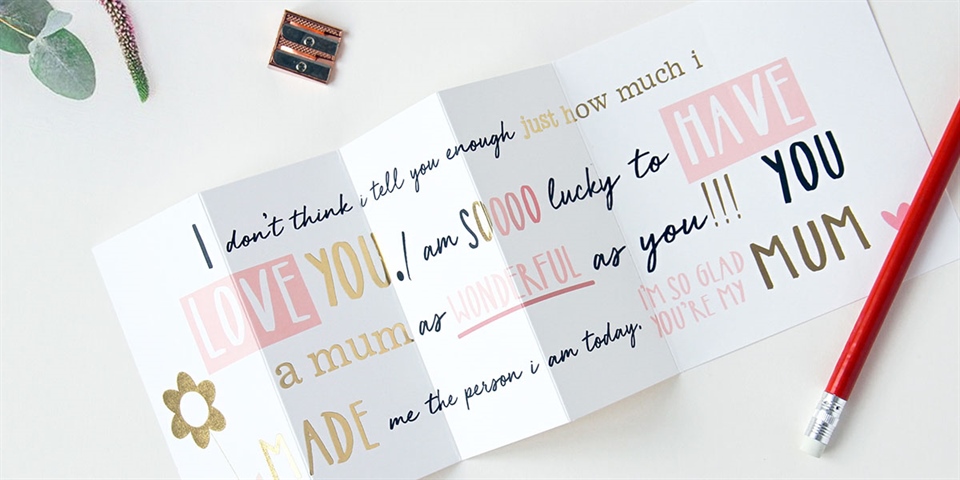 I don't think i tell you enough just how much i
LOVE YOU. I am SOOOO lucky to HAVE
a mum as WONDERFUL as you!!! YOU
MADE me the person i am today. I'M SO GLAD
YOU'RE MY MUM